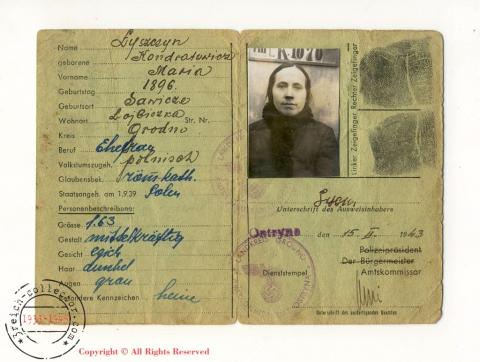 Name Lyszczyn
geborene Kondratowicz
Vorname Maria
Geburtstag 1896.
Geburtsort Sawicze
Wohnort Str. Nr.
Kreis Grodno
Beruf Ehefrau
Volkstumszugeh. polnisch
Glaubensbek. röm. kath.
Staatsangeh. am 1.9.39 Polen
Personenbeschreibung:
Grösse 1.63
Gestalt mittelkräftig
Gesicht
Haar dunkel
Augen grau
Besondere Kennzeichen keine
K 1070
Linker Zeigefinger, Rechter Zeigefinger
Unterschrift des Ausweisinhabers
Ostryna, den 15. II. 1943
Polizeipräsident
Der Bürgermeister
Dienststempel Amtskommissar
Unterschrift des ausfertigenden Beamten
3reich-collector.com
1933-1945
Copyright © All Rights Reserved